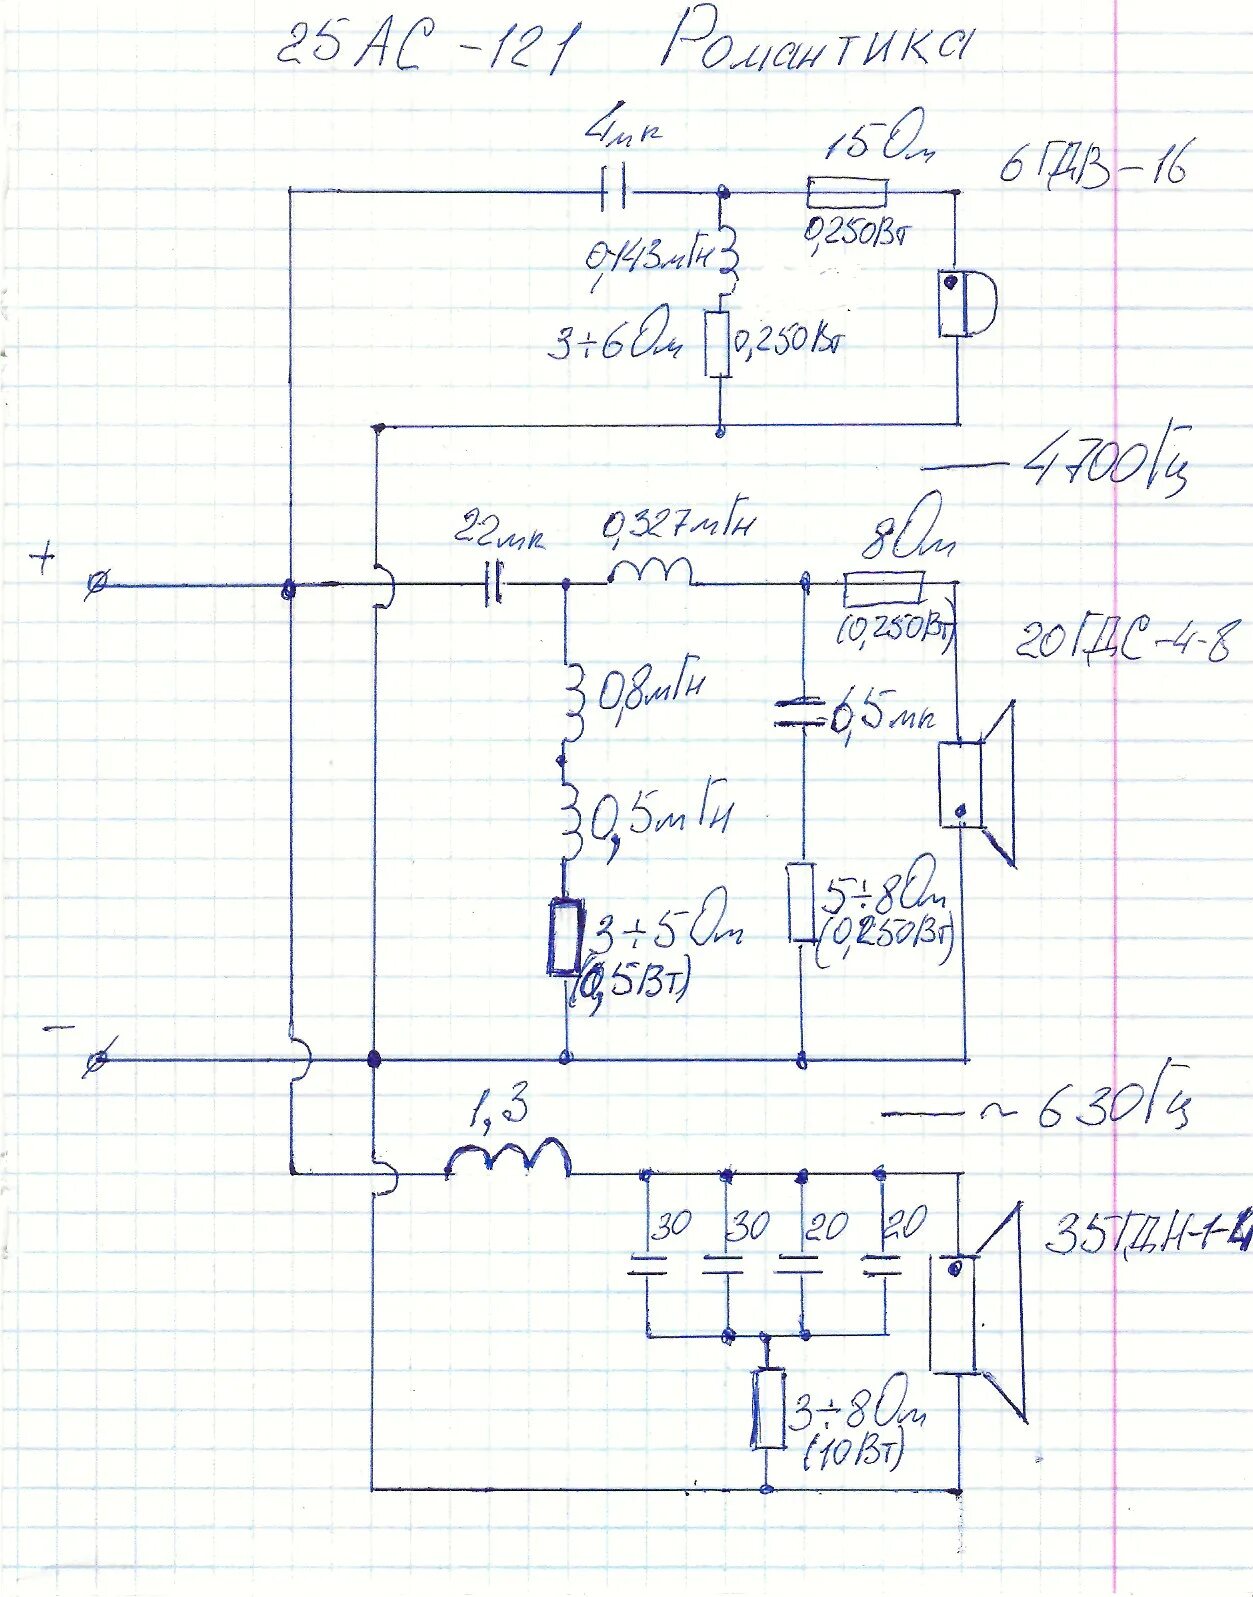 25АС-121 Романтика
4мк
15Ом
6ГДВ-16
0,250Вт
0,143мГн
3÷6Ом
0,250Вт
4700Гц
22мк
0,327мГн
8Ом
+
(0,250Вт)
20ГДС-4-8
0,8мГн
6,5мк
0,5мГн
5÷8Ом
(0,250Вт)
3÷5Ом
(0,5Вт)
-
1,3
~630Гц
30
30
20
20
35ГДН-1-4
3÷8Ом
(10Вт)